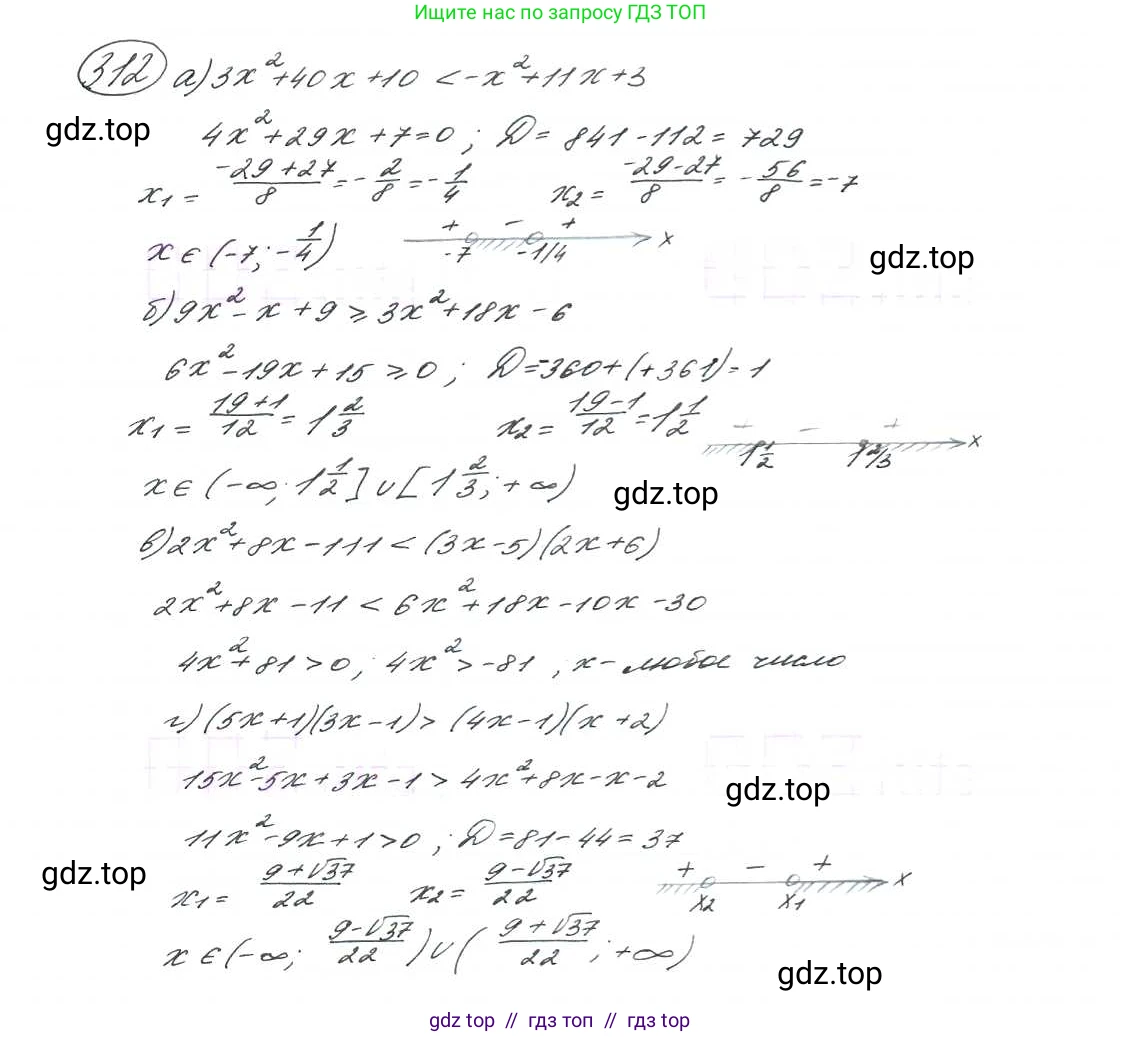 Ищите нас по запросу ГДЗ ТОП
312 а) 3x² + 40x + 10 < -x² + 11x + 3
gdz.top
4x² + 29x + 7 = 0 ; D = 841 - 112 = 729
x₁ = (-29 + 27)/8 = -2/8 = -1/4 x₂ = (-29 - 27)/8 = -56/8 = -7
x ∈ (-7; -1/4) + - + -7 -1/4 x
gdz.top
б) 9x² - x + 9 ≥ 3x² + 18x - 6
6x² - 19x + 15 ≥ 0 ; D = -360 + (+361) = 1
x₁ = (19 + 1)/12 = 1 2/3 x₂ = (19 - 1)/12 = 1 1/2 + - + 1 1/2 1 2/3 x
x ∈ (-∞; 1 1/2] ∪ [1 2/3; +∞)
gdz.top
в) 2x² + 8x - 111 < (3x - 5)(2x + 6)
2x² + 8x - 11 < 6x² + 18x - 10x - 30
4x² + 81 > 0 ; 4x² > -81 , x - любое число
г) (5x + 1)(3x - 1) > (4x - 1)(x + 2)
15x² - 5x + 3x - 1 > 4x² + 8x - x - 2
gdz.top
11x² - 9x + 1 > 0 ; D = 81 - 44 = 37
gdz.top
x₁ = (9 + √37)/22 x₂ = (9 - √37)/22 + - + x₂ x₁ x
x ∈ (-∞; (9 - √37)/22) ∪ ((9 + √37)/22; +∞)
gdz.top
gdz top // гдз топ // gdz top